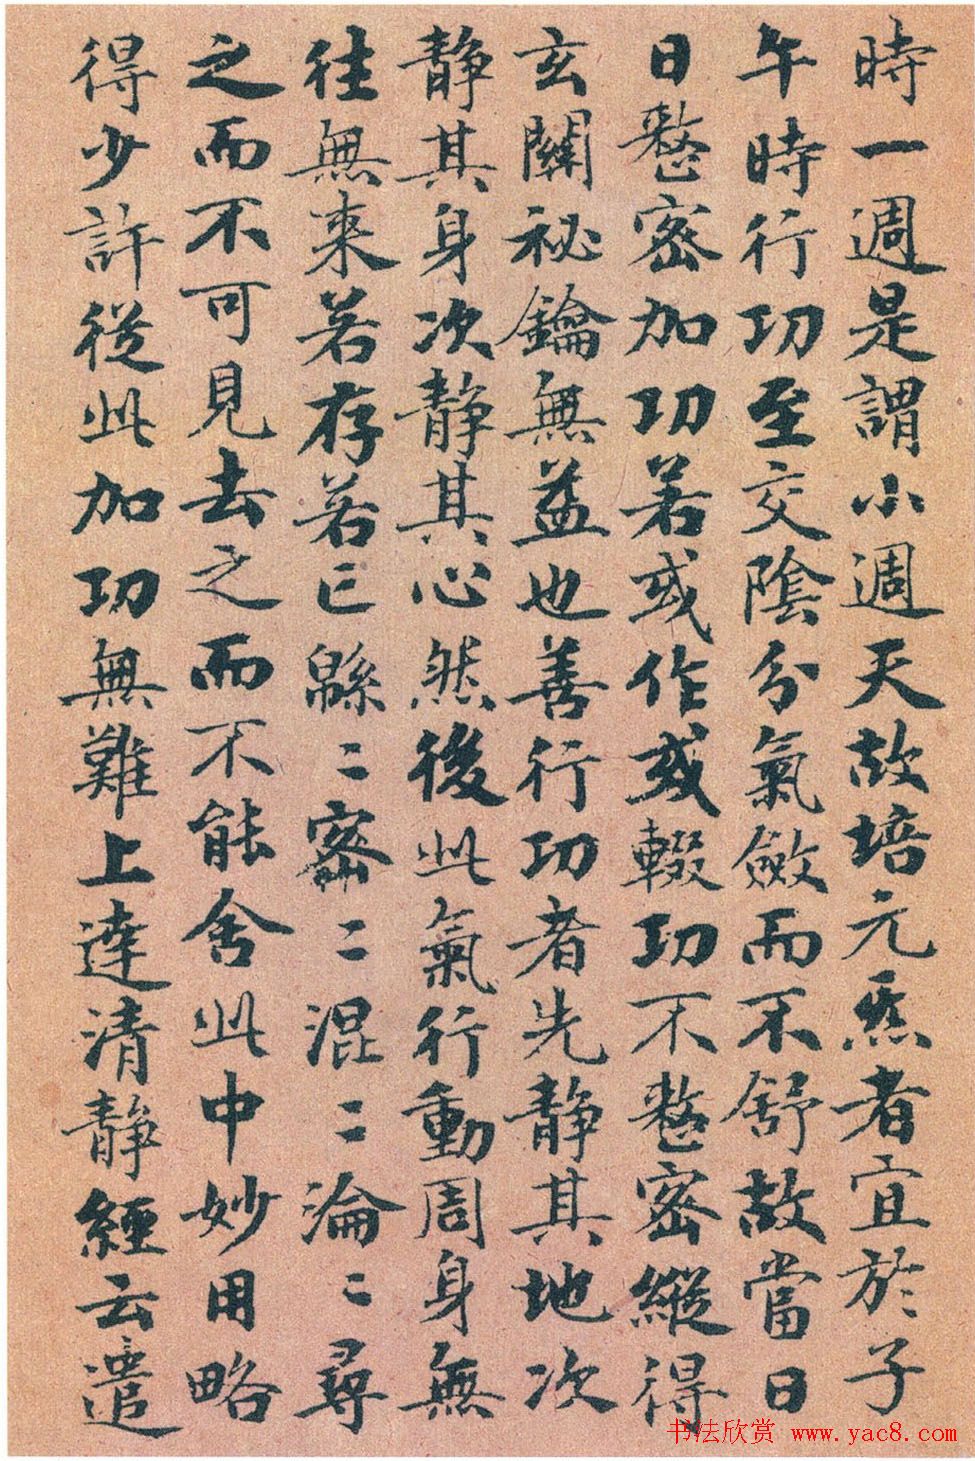 時一週是謂小週天故培元炁者宜於子
午時行功至交陰分氣斂而不舒故當日
日慤密加功若或作或輟功不慤密縱得
玄關祕鑰無益也善行功者先靜其地次
靜其身次靜其心然後此氣行動周身無
往無來若存若亡緜〻密〻混〻淪〻尋
之而不可見去之而不能舍此中妙用略
得少許從此加功無難上達清靜經云遣
书法欣赏 www.yac8.com